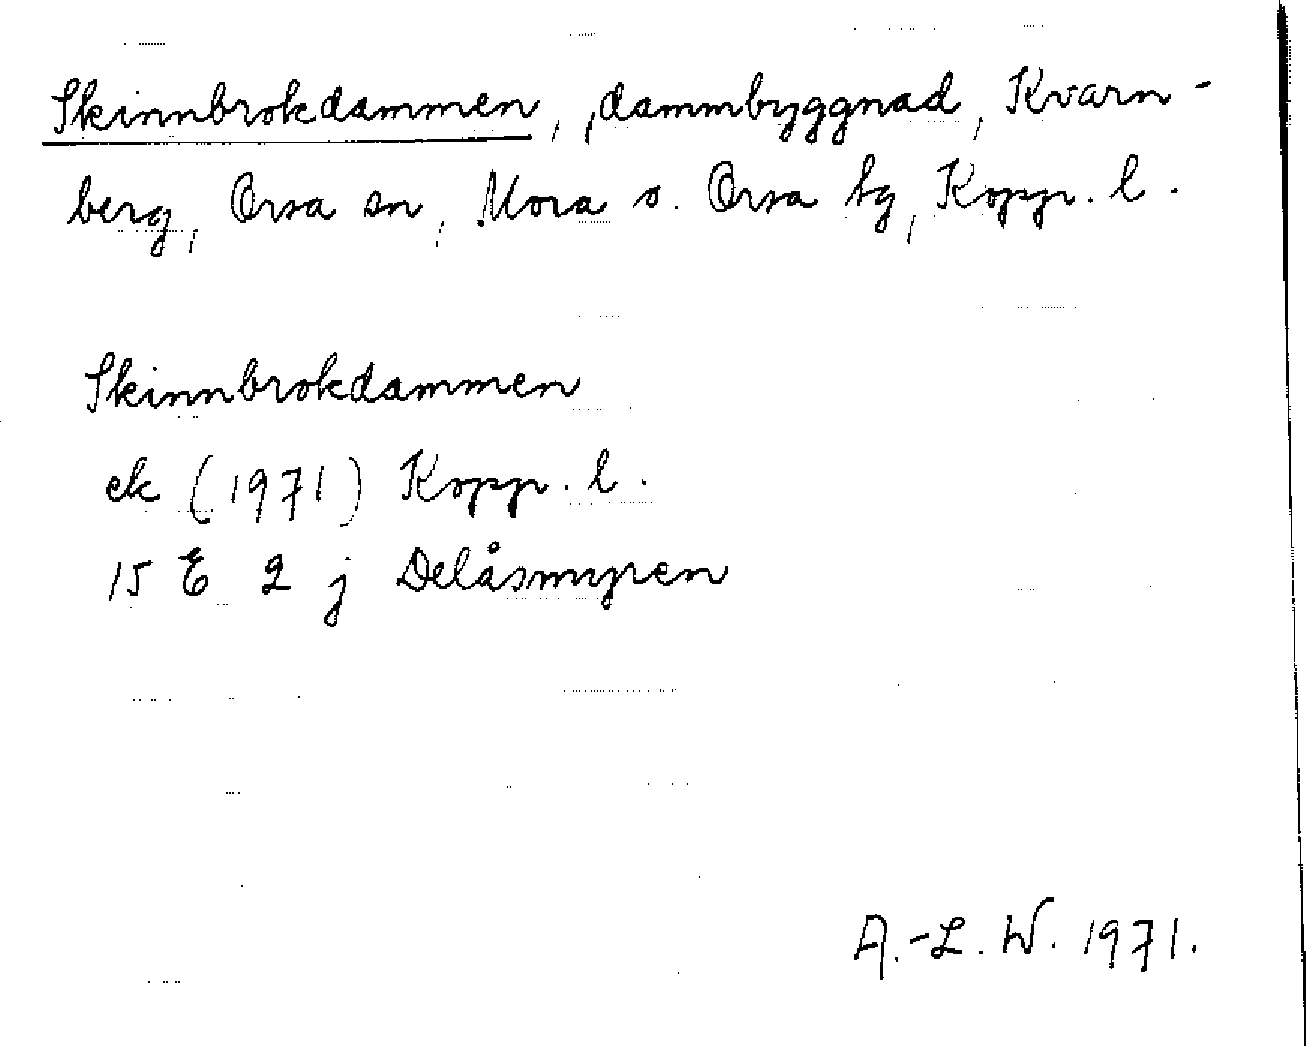 Skinnbrokdammen, dammbyggnad, Kvarn-
berg, Orsa sn, Mora o. Orsa tg, Kopp. l.
Skinnbrokdammen
ek (1971) Kopp. l.
15 E 2 j Delåsmyren
A.-L. W. 1971.